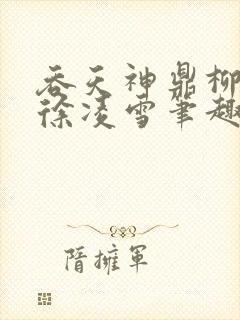 吞天神鼎柳
徐凌雪笔趣
隋擁軍